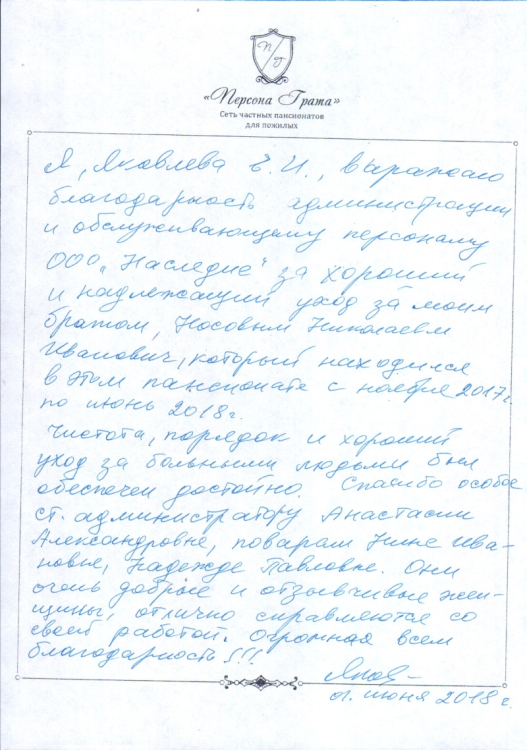 П/Г
«Персона Грата»
Сеть частных пансионатов
для пожилых
Я, Яковлева Е.И., выражаю
благодарность администрации
и обслуживающему персоналу
ООО „Наследие“ за хороший
и надлежащий уход за моим
братом, Носовым Николаем
Иванович, который находился
в этом пансионате с ноября 2017г.
по июнь 2018г.
Чистота, порядок и хороший
уход за больными людьми был
обеспечен достойно. Спасибо особое
ст. администратору Анастасии
Александровне, поварам Нине Ива-
новне, Надежде Павловне. Они
очень добрые и отзывчивые жен-
щины, отлично справляются со
своей работой. Огромная всем
благодарность!!!
июня 2018 г.